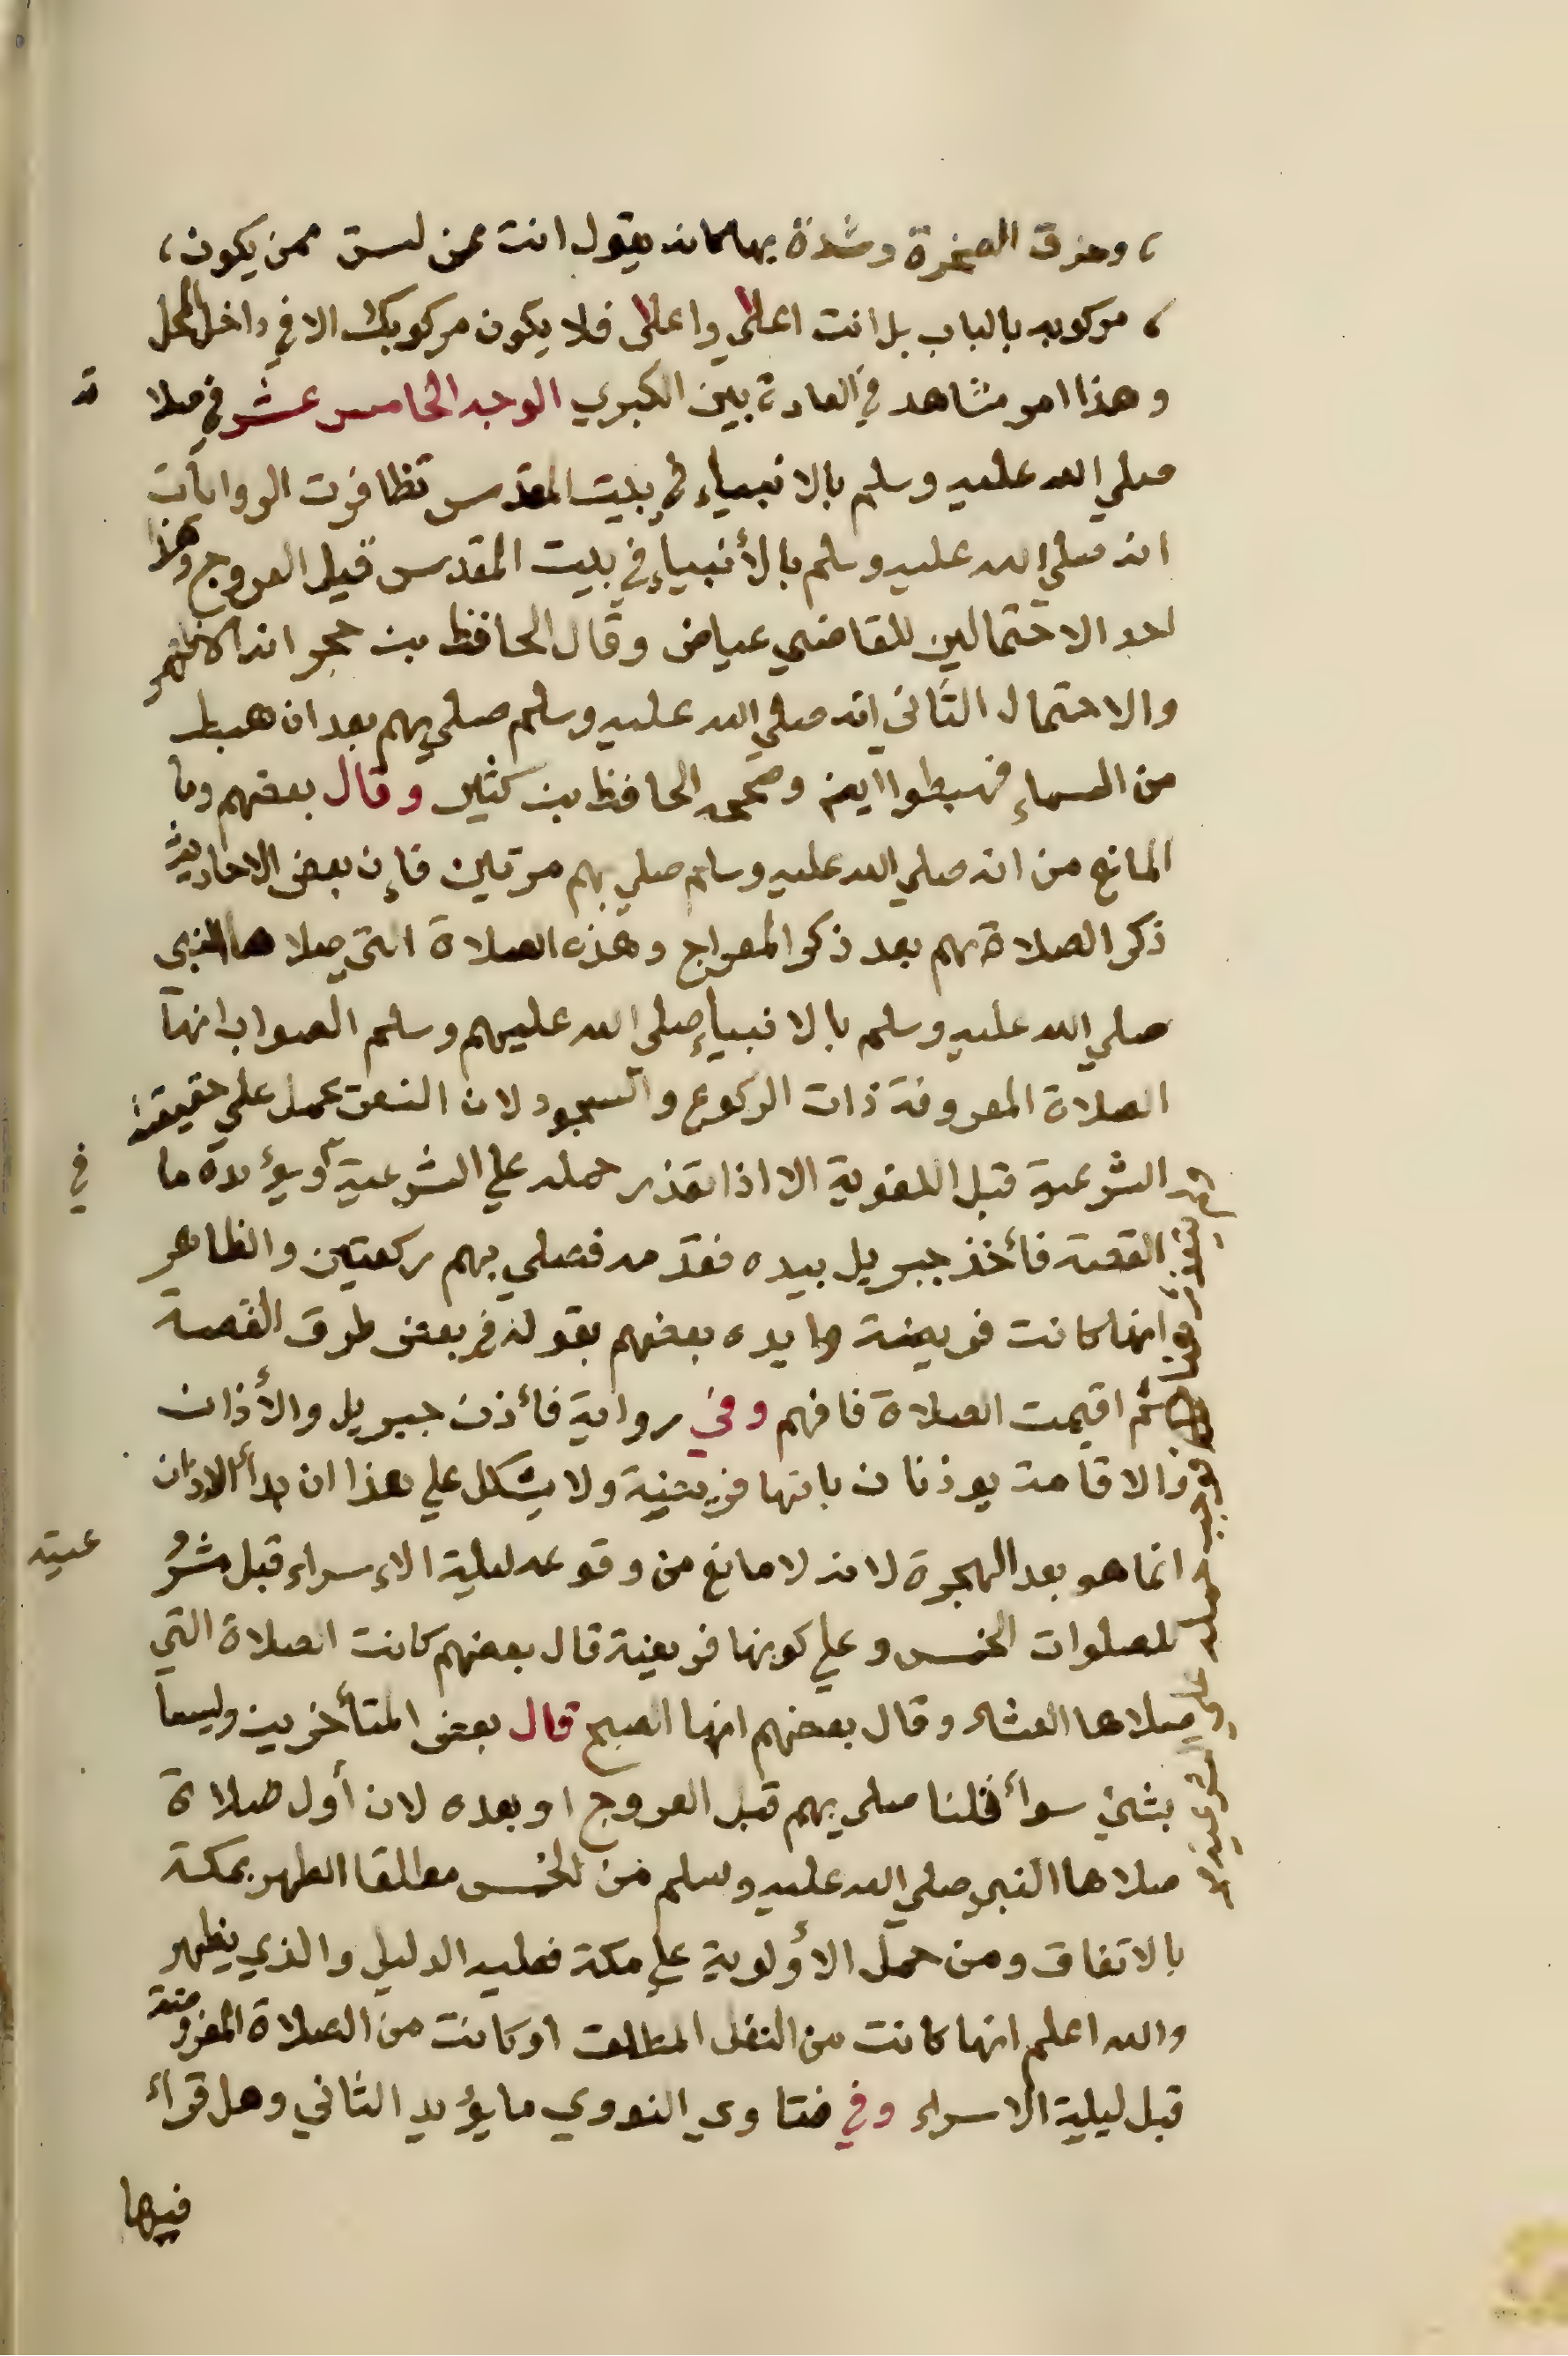 ، وخرق الصخرة وشدة بها كانه يقول انت ممن لست ممن يكون ،
، مركوبه بالباب بل انت اعلى واعلى فلا يكون مركوبك الا في داخل المحل
وهذا امر مشاهد في العادة بين الكبري الوجه الخامس عشر في صلا ته
صلي الله عليه وسلم بالانبياء في بيت المقدس تظافرت الروايات
انه صلي الله عليه وسلم بالأنبياء في بيت المقدس قبل العروج وهذا
احد الاحتمالين للقاضي عياض وقال الحافظ بن حجر انه الاظهر
والاحتمال الثاني انه صلي الله عليه وسلم صلي بهم بعد ان هبط
من السماء فهبطوا ايض وصححه الحافظ بن كثير وقال بعضهم وما
المانع من انه صلي الله عليه وسلم صلي بهم مرتين فإن بعض الاحاديث
ذكر الصلاة بهم بعد ذكر المعراج وهذه الصلاة التي صلاها النبي
صلي الله عليه وسلم بالانبياء صلي الله عليهم وسلم الصواب انها
الصلاة المعروفة ذات الركوع والسجود لان النص يحمل علي حقيقته
الشرعية قبل اللغوية الا اذا تعذر حمله علي الشرعية ويؤيده ما في
القصة فأخذ جبريل بيده فقدمه فصلي بهم ركعتين والظاهر
انها كانت فريضة وايده بعضهم بقوله في بعض طرق القصة
ثم اقيمت الصلاة فافهم وفي رواية فأذن جبريل والأذان
والاقامة يوذنان بانها فريضية ولا يشكل علي هذا ان بدأ الاذان
انما هو بعد الهجرة لانه لا مانع من وقوعه ليلية الاسراء قبل مشرو عيته
للصلوات الخمس وعلي كونها فريضية قال بعضهم كانت الصلاة التي
صلاها العشاء وقال بعضهم انها الصبح قال بعض المتأخرين وليسا
بشئ سوأ قلنا صلي بهم قبل العروج او بعده لان أول صلاة
صلاها النبي صلي الله عليه وسلم من الخمس مطلقا الظهر بمكة
بالاتفاق ومن حمل الأولوية علي مكة فعليه الدليل والذي يظهر
والله اعلم انها كانت من النفل المطلق او كانت من الصلاة المفروضة
قبل ليلية الاسراء وفي فتاوي النووي ما يؤيد الثاني وهل قرأ
فيها
فوجب حمله علي الشرعية